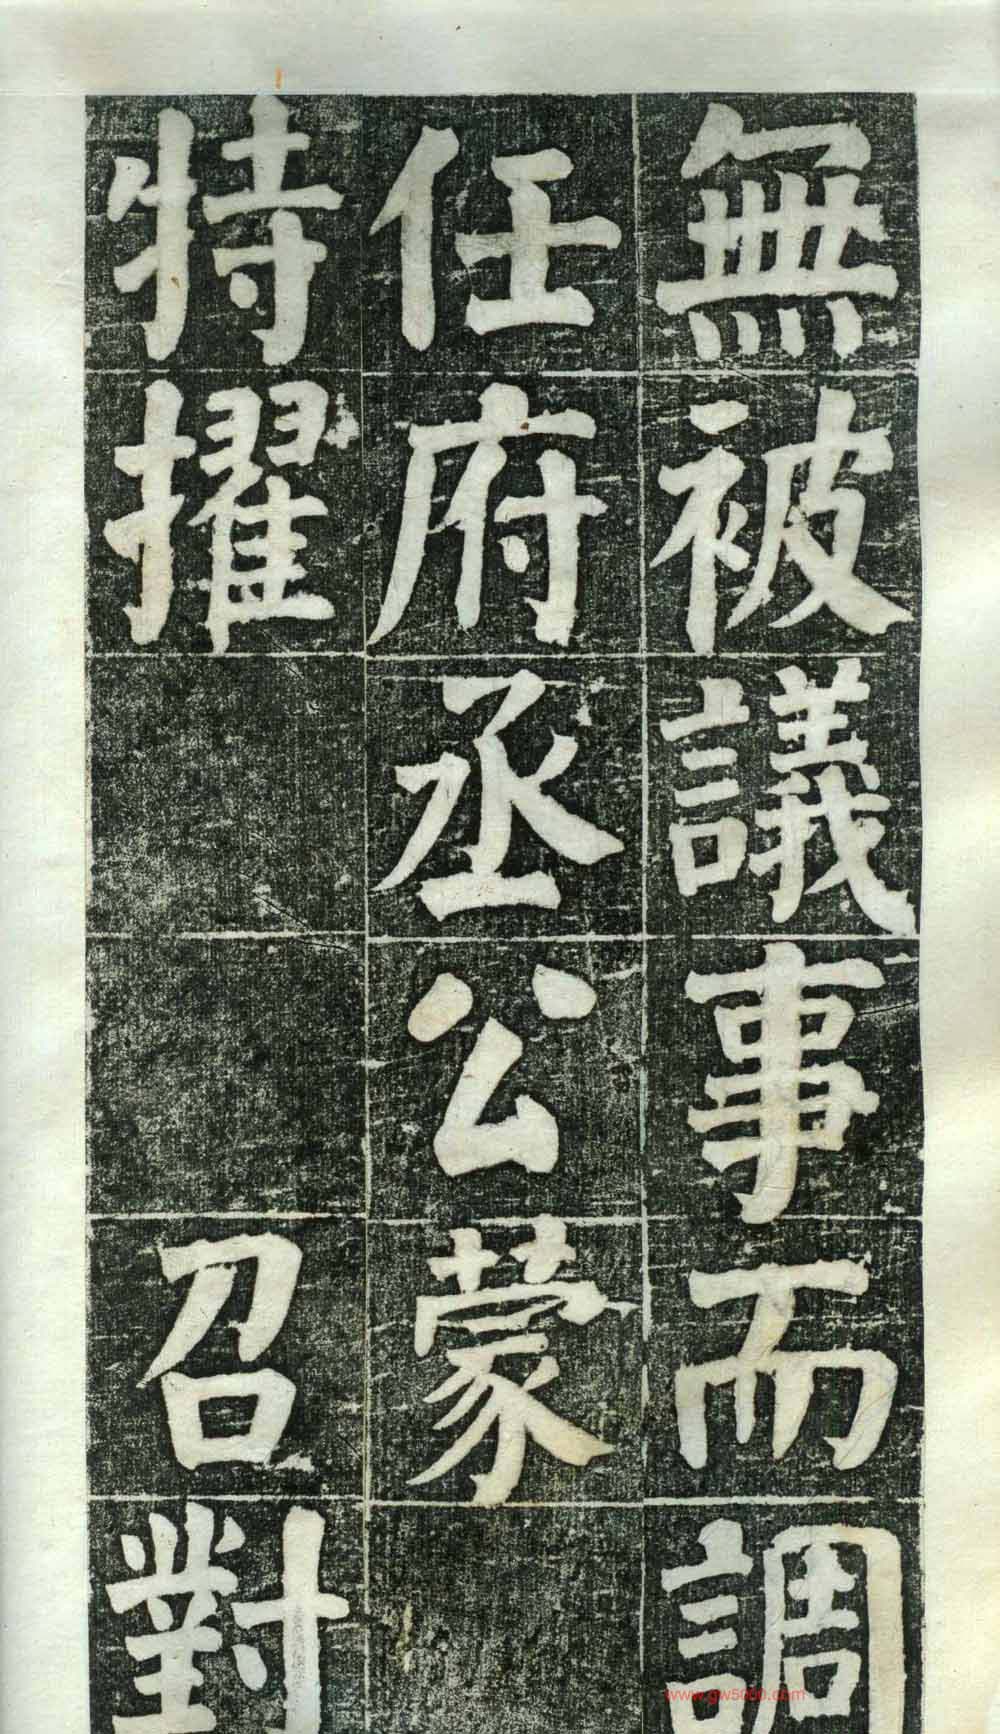 無被議事而調
任府丞公蒙
特擢 召對
www.gw5000.com